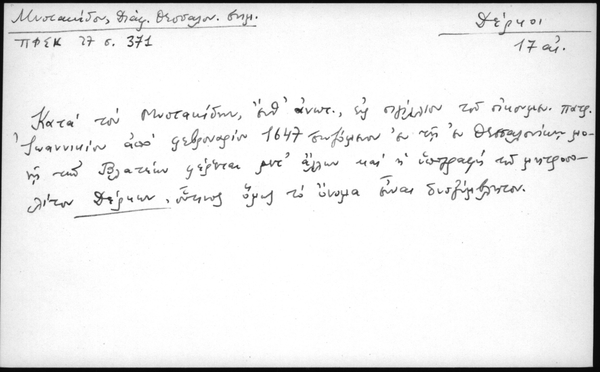 Μυστακίδου, Διάφ. Θεσσαλον. σιγίλ.
Δέρκοι
ΠΦΣΚ 27 σ. 371
17 αἰ.
Κατά τόν Μυστακίδην, ἔνθ' ἀνωτ., εἰς σιγίλλιον τοῦ οἰκουμεν. πατρ.
Ἰωαννικίου ἀπό φεβρουαρίου 1647 σωζόμενον ἐν τῇ ἐν Θεσσαλονίκῃ μο-
νῇ τῶν Βλατέων φέρεται μετ' ἄλλων καί ἡ ὑπογραφή τοῦ μητροπο-
λίτου Δέρκων, οὗτινος ὅμως τό ὄνομα εἶναι